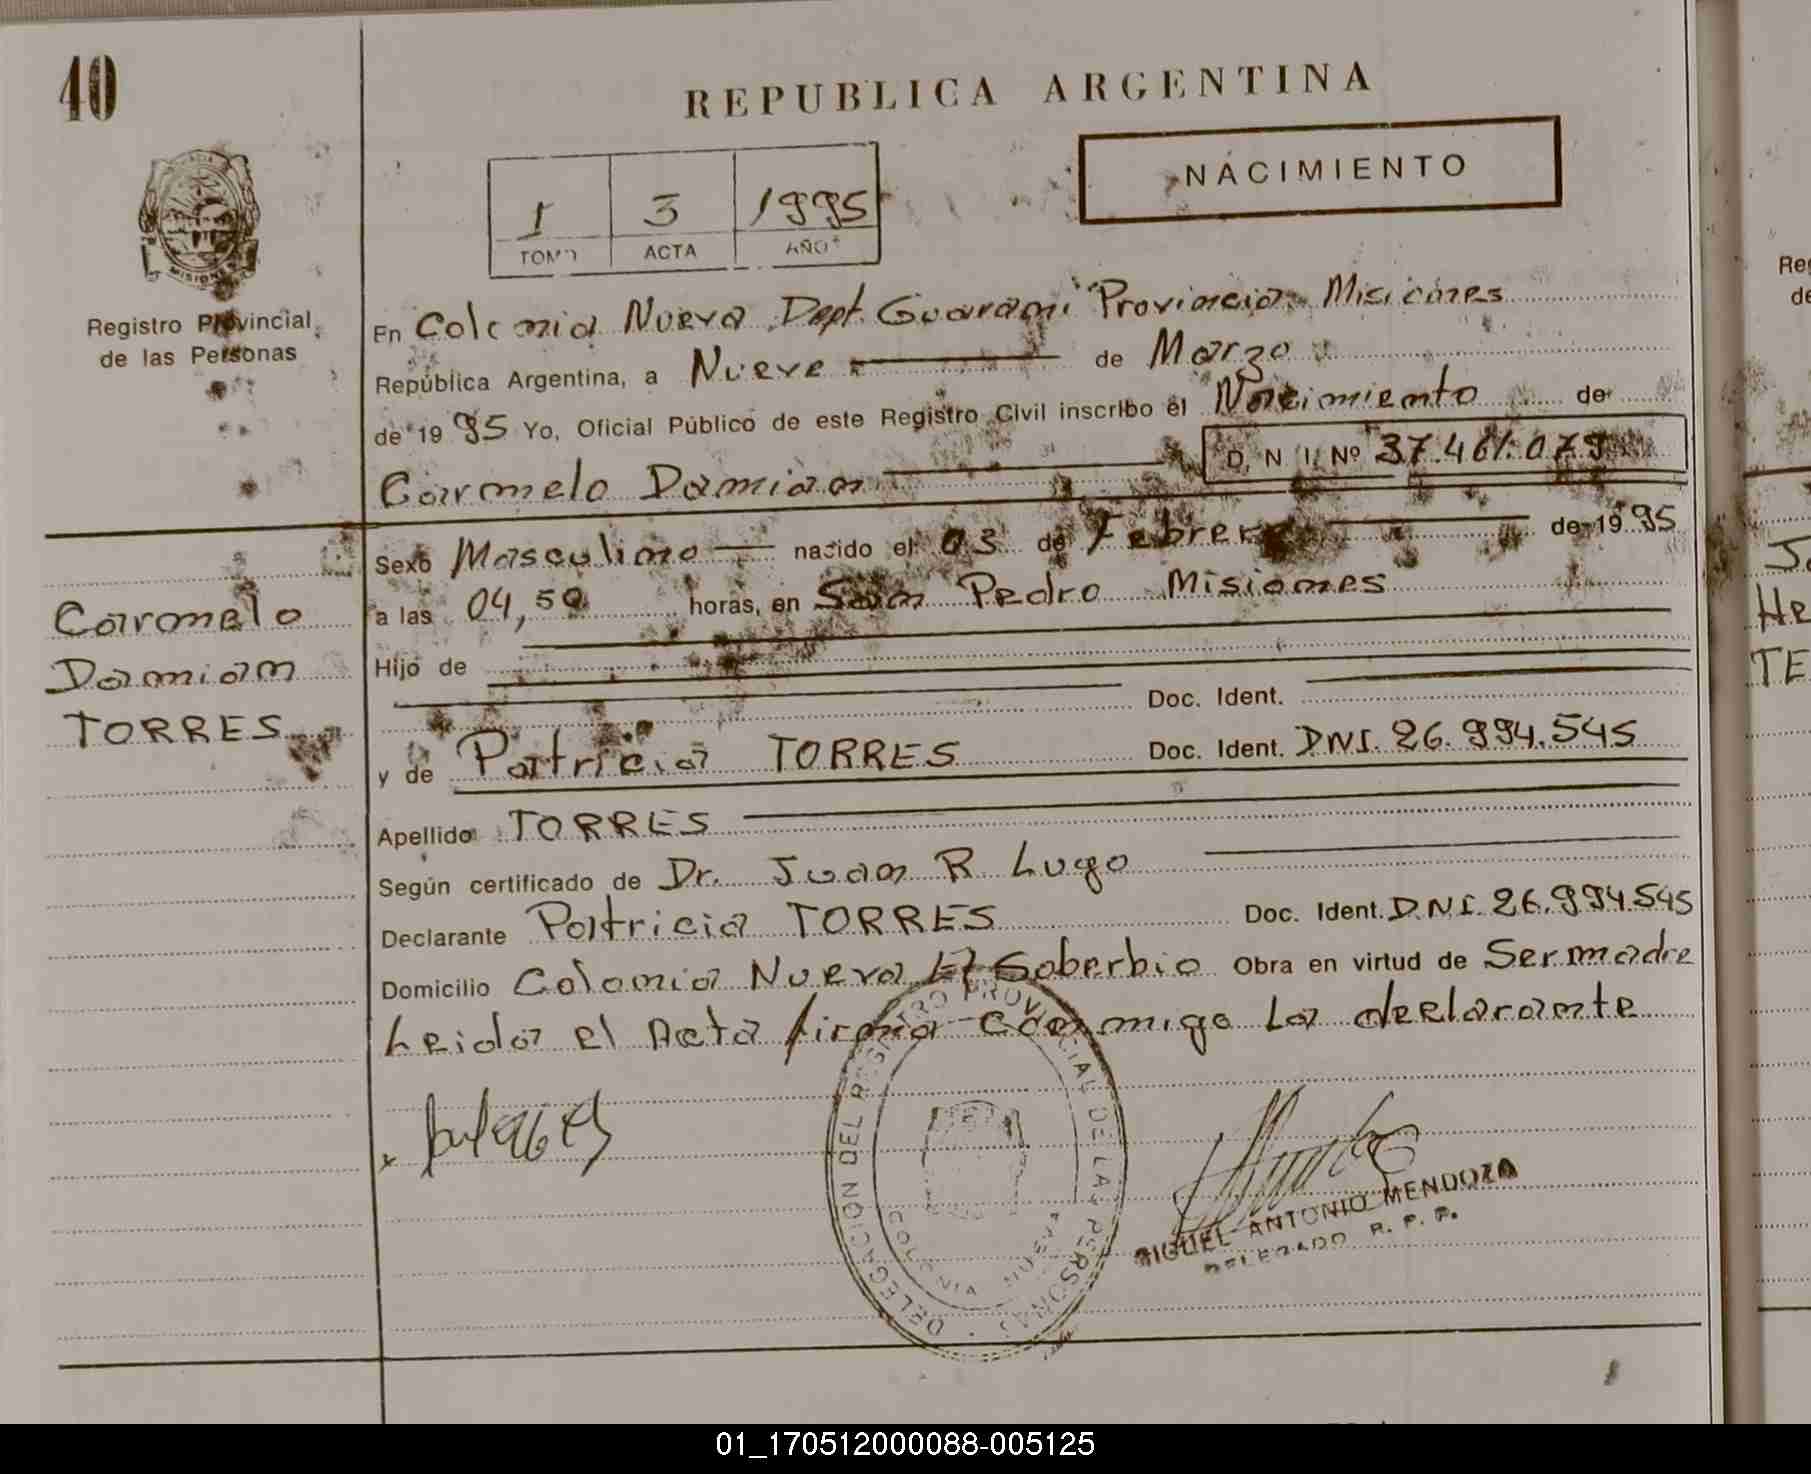 40
REPUBLICA ARGENTINA
NACIMIENTO
I 3 1995
TOMO ACTA AÑO
MISIONES
Registro Provincial
de las Personas
En Colonia Nueva Dept. Guarani Provincia Misiones
República Argentina, a Nueve de Marzo
de 1995 Yo, Oficial Público de este Registro Civil inscribo el Nacimiento de
D N I Nº 37.461.079
Carmelo Damian
Sexo Masculino nacido el 03 de Febrero de 1995
a las 04,50 horas, en San Pedro Misiones
Carmelo
Damian
TORRES
Hijo de
Doc. Ident.
y de Patricia TORRES Doc. Ident. DNI. 26.994.545
Apellido TORRES
Según certificado de Dr. Juan R Lugo
Declarante Patricia TORRES Doc. Ident. DNI. 26.994.545
Domicilio Colonia Nueva El Soberbio Obra en virtud de Ser madre
Leida el Acta firma conmigo La declarante
DELEGACION DEL REGISTRO PROVINCIAL DE LAS PERSONAS
COLONIA NUEVA
MIGUEL ANTONIO MENDOZA
DELEGADO R. P. P.
Re
de
J
He
TE
01_170512000088-005125